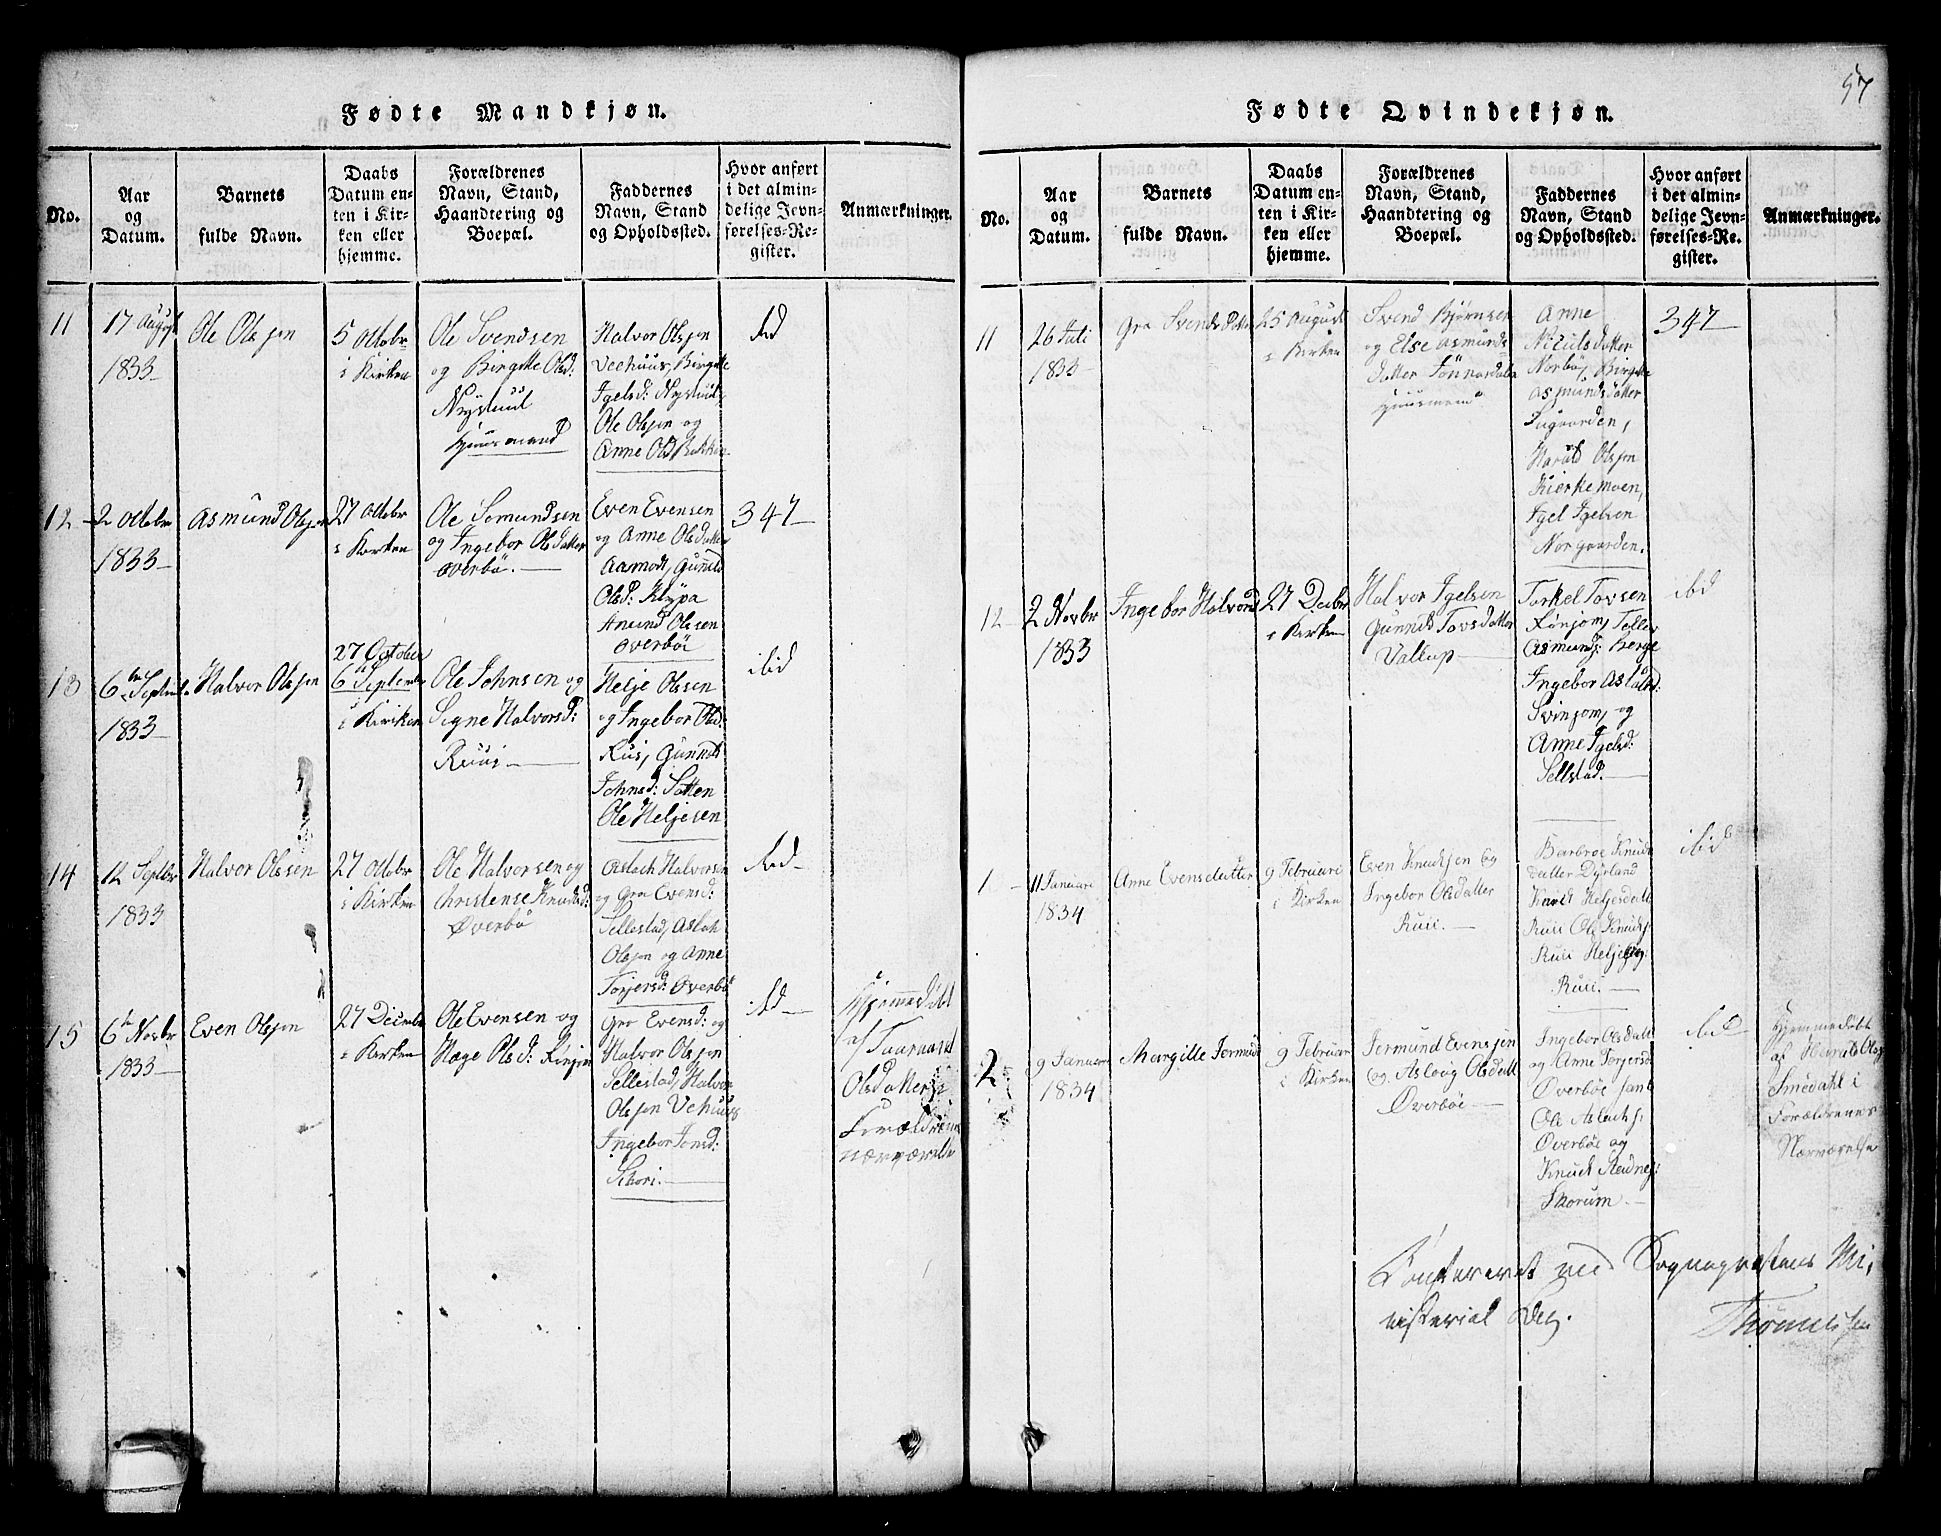 57
Fødte Mandkjøn.
No.
Aar
og
Datum.
Barnets
fulde Navn.
Daabs
Datum en-
ten i Kir-
ken eller
hjemme.
Forældrenes
Navn, Stand,
Haandtering og
Boepæl.
Faddernes
Navn, Stand
og Opholdssted.
Hvor anført
i det almin-
delige Jevn-
førelses-Re-
gister.
Anmærkninger.
11
17 August
1833
Ole Olsen
5 Octobr
i Kirken
Ole Svendsen
og Birgitte Olsd:
Nystuul
Huusmand
Halvor Olsen
Veehuus, Birgitte
Igelsd: Nystuul,
Ole Olsen og
Anne Olsd Bakken
ibid
12
2 Octobr
1833
Asmund Olsen
27 Octobr
i Kirken
Ole Somundsen
og Ingebor Olsdatter
Overbö.
Even Evensen
og Anne Olsdatter
Aamodt, Gunild
Olsd: Klypa
Anund Olesen
Overböe
347
13
6te Septembr
1833
Halvor Olsen
27 October
6 September
i Kirken
Ole Johnsen og
Signe Halvorsd:
Ruui
Helje Olssen
og Ingebor Olsd:
Rui, Gunnild
Johnsd: Satten
Ole Heljesen
ibid
14
12 Septbr
1833
Halvor Olssen
27 Octobr
i Kirken
Ole Halvorsen og
Christense Knudsd:
Øverbö
Aslach Halvorsen
og Gro Evensd:
Sellestad, Aslak
Olsen og Anne
Torjersd: Overbö
ibid
15
6te Novbr
1833
Even Olsen
27 Decembr
i Kirken
Ole Evensen og
Hæge Olsd: Rinjom
Gro Evensd: og
Halvor Olsen
Sellestad, Halvor
Olsen Vehuus
Ingebor Jonsd:
Skori.
ibid
Hjemmedöbt
af Taaraand
Olsdatter i
Forældrenes
nærværelse
Fødte Qvindekjøn.
No.
Aar
og
Datum.
Barnets
fulde Navn.
Daabs
Datum en-
ten i Kir-
ken eller
hjemme.
Forældrenes
Navn, Stand,
Haandtering og
Boepæl.
Faddernes
Navn, Stand
og Opholdssted.
Hvor anført
i det almin-
delige Jevn-
førelses-Re-
gister.
Anmærkninger.
11
26 Juli
1833
Gro Svendsdatter
25 August
i Kirken
Svend Bjørnsen
og Else Asmunds-
datter Tönnardalen
Huusmand
Anne
Niculsdatter
Norbö, Birgitte
Asmundsdatter
Sugaarden,
Harald Olsen
Kierkemoen,
Igel Igelsen
Norgaarden.
347
12
2 Novbr
1833
Ingebor Halvorsd
27 Decbr
i Kirken
Halvor Igelsen
Gunnild Tovsdatter
Vallup
Torkel Tovsen
Asmunds: Berge
Ingebor Aslaksd:
Svinjom, og
Anne Igelsd:
Sellstad.
ibid
1
11 Januari
1834
Anne Evensdatter
9 Februari
i Kirken
Even Knudsen og
Ingebor Olsdatter
Ruii.
Barbroe Knuds
datter Dyrland
Knud Heljesdatt
Ruii Ole Knuds
Ruii Helje
Ruii.
ibid
2
9 Januar
1834
Margitte Jermunds
9 Februar
i Kirken
Jermund Evensen
og Aslaug Olsdatt
Øverböe
Ingebor Olsdatt
og Anne Torjersd
Øverböe samt
Ole Aslachs:
Øverböe og
Knud
Skorum
ibid
Hjemmedöbt
af Harald Ols
Smedahl i
Forældrenes
Nærværelse
Confereret med Sognepræstens Mi-
nisterial Bog.